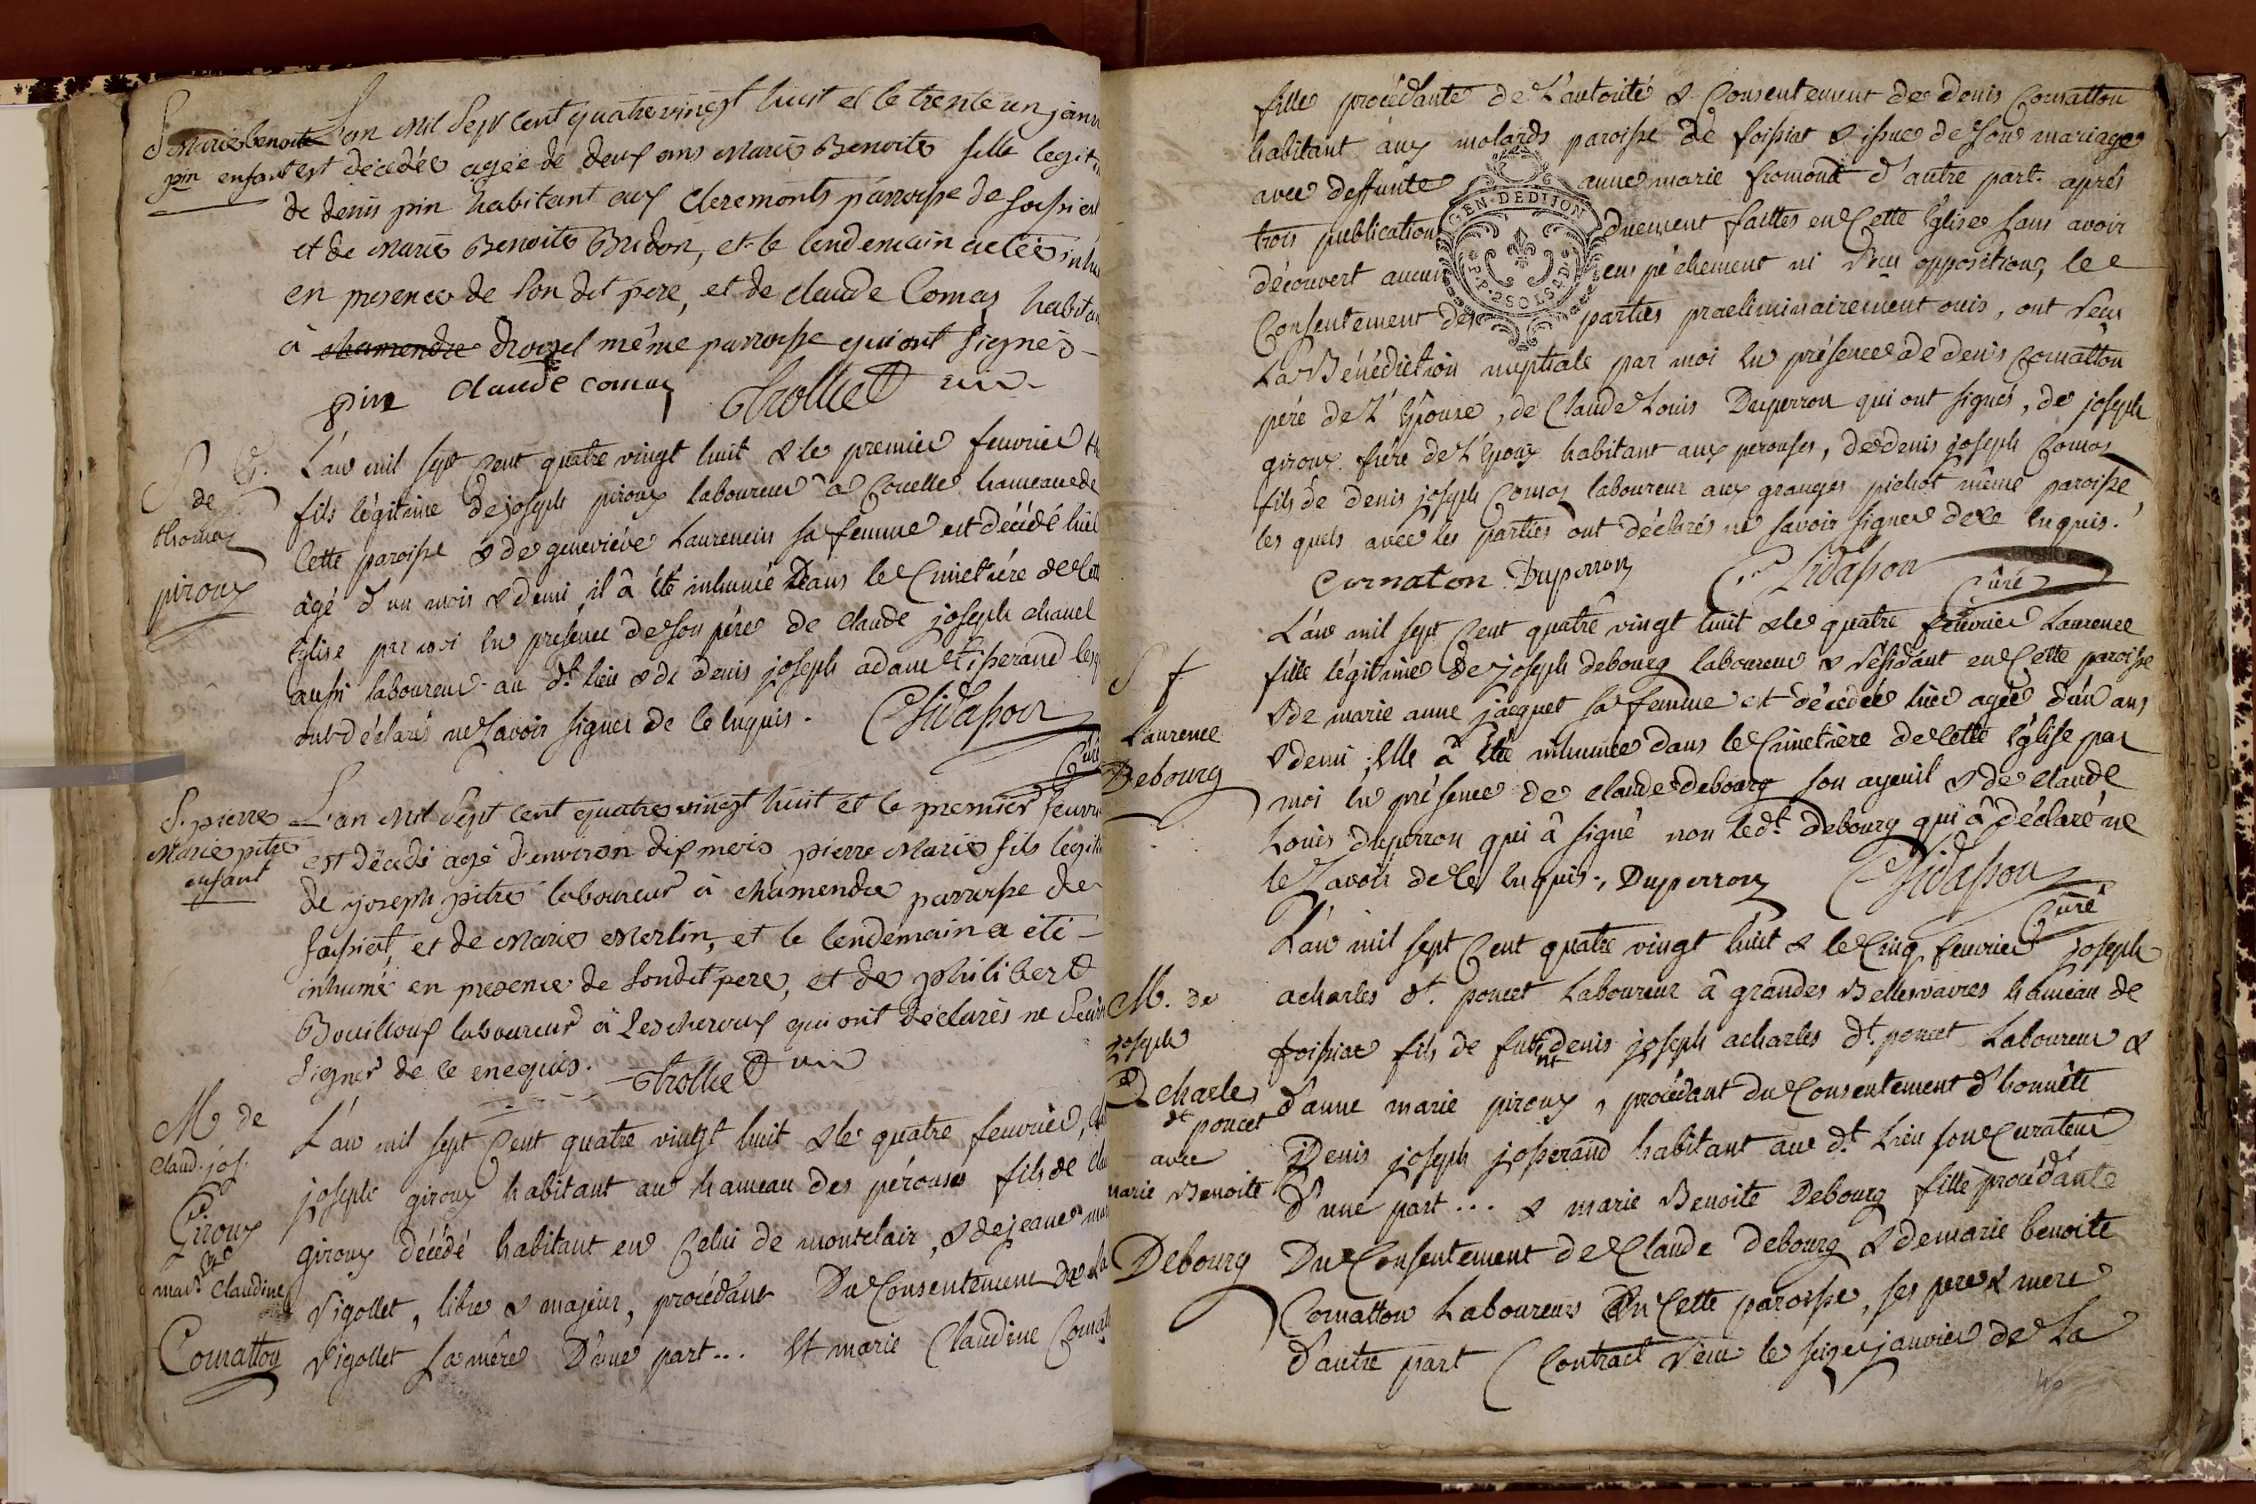 S. Marie benoite
pin enfant
L'an mil sept cent quatre vingt huit et le trente un janv
est décédée agée de deux ans Marie Benoite fille legit
de denis pin habitant aux Cleremonts parroisse de foissiat
et de Marie Benoite Bridon, et le lendemain a etée inhu
en presence de son dit pere, et de claude Comas habitan
à chamendre même parroisse qui ont signés
pin claude comas Trolliet
S. G.
de
thomas
piroux
L'an mil sept cent quatre vingt huit & le premier feuvrier th
fils légitime de joseph piroux laboureur à Couelle hameau de
Cette paroisse & de geneviéve Laurencin sa femme est décédé hier
âgé d'un mois & demi, il â été inhumé Dans le Cimetiére de cette
Eglise par moi en presence de son pére de claude joseph chanel
aussi laboureur au dt lieu & de denis joseph adam tisserand lesq
ont déclarés ne savoir signer de ce enquis. Chidasson
Curé
S. pierre
Marie pitre
enfant
L'an mil sept cent quatre vingt huit et le premier feuvri
est décédé agé d'environ dix mois pierre Marie fils legiti
de joseph pitre laboureur à chamendre parroisse de
foissiat, et de Marie Merlin, et le lendemain a été
inhumé en presence de son dit pere, et de philibert
Bouilloux laboureur à Lescheroux qui ont déclarés ne scavoir
signer de ce enequis. Trolliet
M. de
claud. jos.
Giroux
avec
marie Claudine
Cornatton
L'an mil sept Cent quatre vingt huit & le quatre feuvrier,
joseph giroux habitant au hameau des pérouses fils de clau
giroux décédé habitant en Celui de montclair, & de jeanne mar
Vigollet, libre & majeur, procédant Du Consentement de la
Vigollet sa mére D'une part... Et marie Claudine Cornat
fille procédante de L'autorité & Consentement de denis Cornatton
habitant aux molards paroisse de foissiat & issue de son mariage
avec deffunte anne marie fromond d'autre part. aprés
trois publications duement faittes en Cette Eglise sans avoir
découvert aucun empéchement ni reçu opposition, le
Consentement des parties praeliminairement ouis, ont reçu
La Bénédiction nuptiale par moi en présence de denis Cornatton
pére de L'Epouse, de Claude Louis Duperron qui ont signés, de joseph
giroux frére de L'Epoux habitant aux perouses, de denis joseph Comas
fils de denis joseph Comas laboureur aux granges pichot même paroisse
les quels avec les parties ont déclarés ne savoir signer de ce enquis.
GEN. DE DIJON
P.P. 2 SOLS 4 D.
Cornaton Duperron Chidasson
Curé
S f
Laurence
Debourg
L'an mil sept Cent quatre vingt huit & le quatre feuvrier Laurence
fille légitime de joseph debourg laboureur & résidant en Cette paroisse
& de marie anne jacquet sa femme est décédée hier agée d'un ans
& demi; Elle â été inhumée dans le Cimetière de cette Eglise par
moi en présence de claude debourg son ayeuil & de claude
Louis duperron qui â signé non le dt. Debourg qui â déclaré ne
le savoir de ce enquis., Duperron Chidasson
Curé
M. de
joseph
acharles
dt poncet
avec
marie Benoite
Debourg
L'an mil sept Cent quatre vingt huit & le Cinq feuvrier joseph
acharles dt. poncet Laboureur â grandes Bellesvaivres hameau de
foissiat fils de denis joseph acharles dt. poncet Laboureur &
d'anne marie piroux, procédant du Consentement d'honnête
Denis joseph josserand habitant au dt. Lieu son Curateur
d'une part... & marie Benoite Debourg fille procédante
Du Consentement de Claude debourg & de marie benoite
Cornatton Laboureurs En Cette paroisse, ses pere & mere
d'autre part (Contract reçu le seize janvier de La